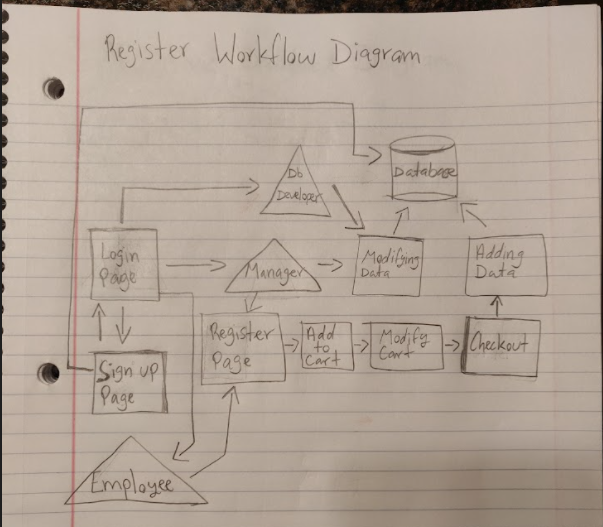 Register Workflow Diagram
Db
Developer
Database
Login
Page
Manager
Modifying
Data
Adding
Data
Register
Page
Add
to
Cart
Modify
Cart
Checkout
Sign up
Page
Employee